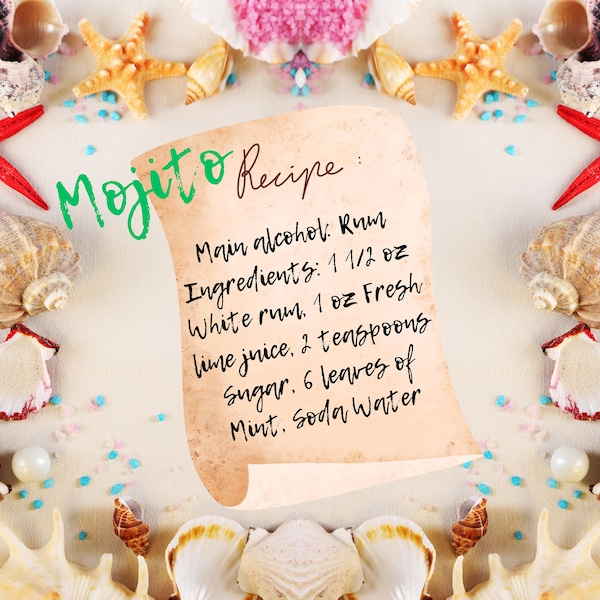 Mojito Recipe :
Main alcohol: Rum
Ingredients: 1 1/2 oz
White rum, 1 oz Fresh
lime juice, 2 teaspoons
sugar, 6 leaves of
Mint, Soda Water